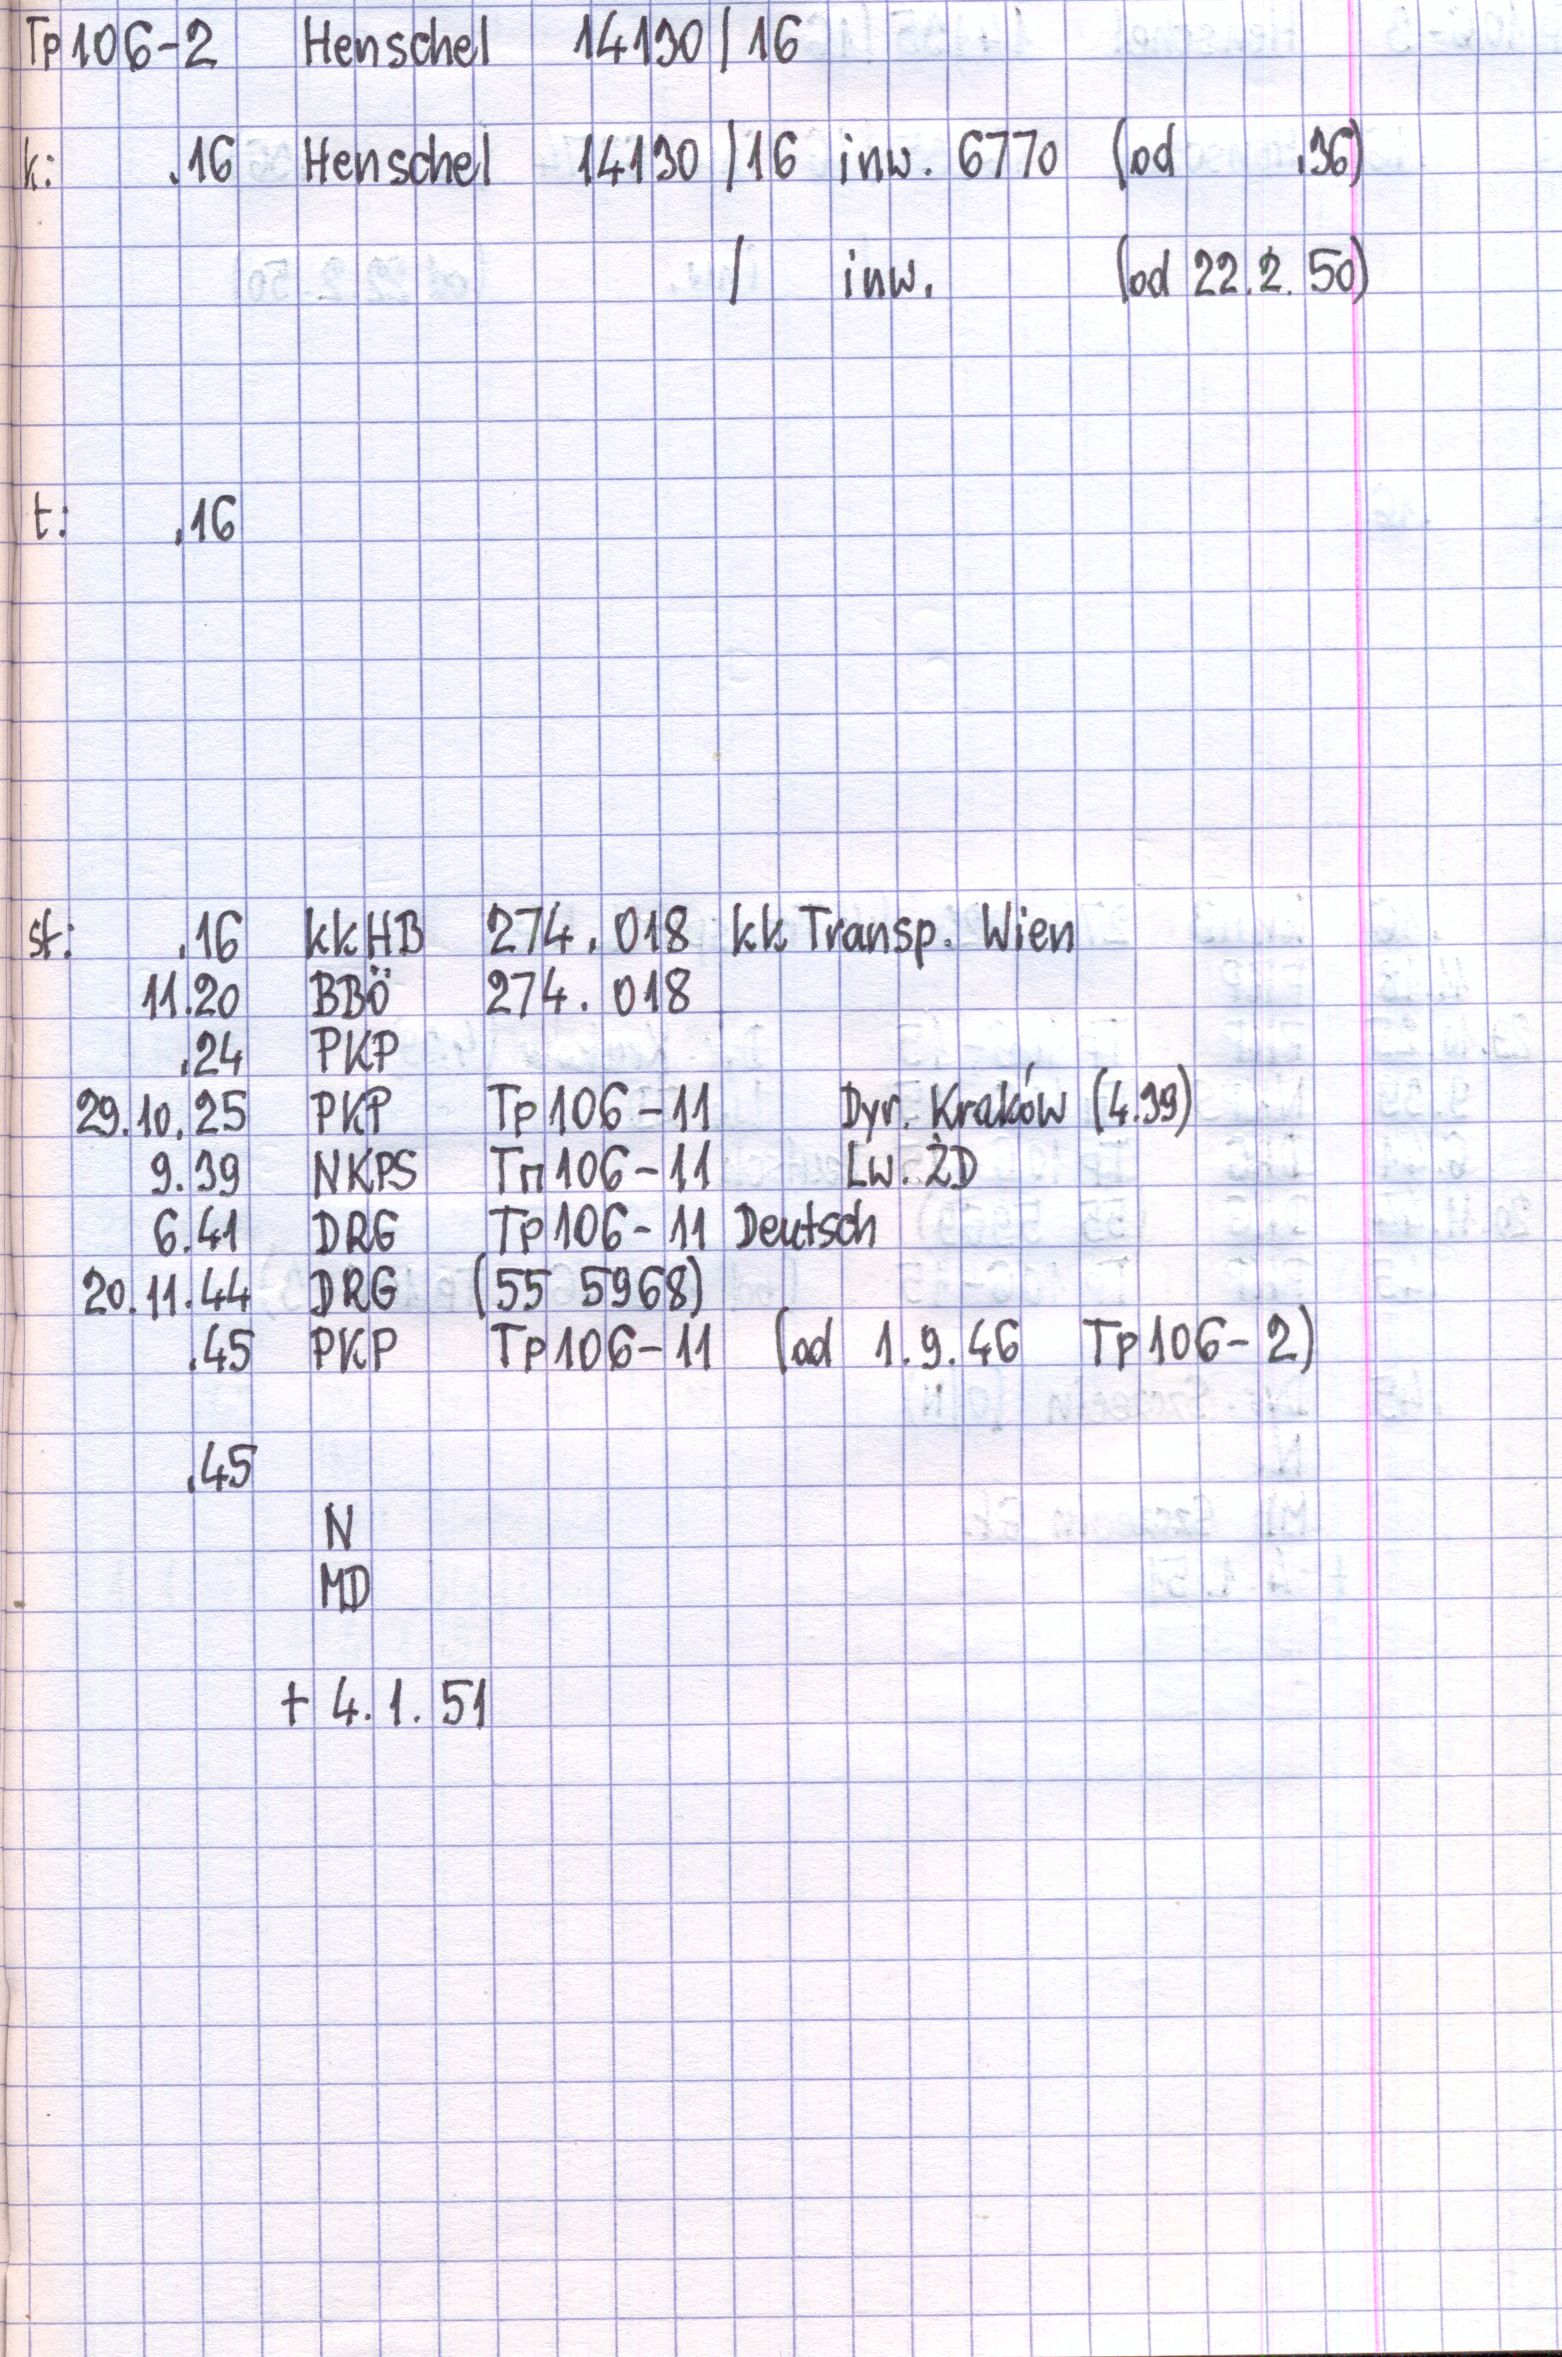 Tp106-2 Henschel 14130/16
k: .16 Henschel 14130/16 inw. 6770 (od .36)
/ inw. (od 22.2.50)
t: .16
st: .16 kkHB 274.018 kk Transp. Wien
11.20 BBÖ 274.018
.24 PKP
29.10.25 PKP Tp106-11 Dyr. Kraków (4.39)
9.39 NKPS Тп106-11 Lw. ŻD
6.41 DRG Tp106-11 Deutsch
20.11.44 DRG (55 5968)
.45 PKP Tp106-11 (od 1.9.46 Tp106-2)
.45
N
MD
+ 4.1.51